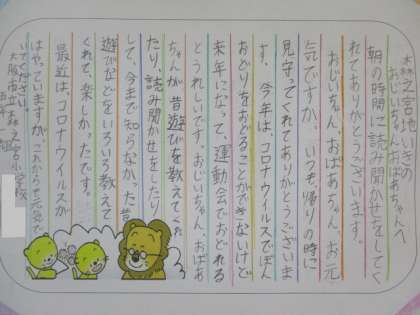 森之宮地いきの
おじいちゃんおばあちゃんへ
朝の時間に読み聞かせをしてく
れてありがとうございます。
おじいちゃん、おばあちゃん、お元
気ですか。いつも、帰りの時に
見守ってくれてありがとうございま
す。今年は、コロナウイルスでぼん
おどりをおどることができないけど
来年になって、運動会でおどれる
とうれしいです。おじいちゃん、おばあ
ちゃんが昔遊びを教えてくれ
たり、読み聞かせをしたり
して、今まで知らなかった昔
遊びなどをいろいろ教えて
くれて、楽しかったです。
最近は、コロナウイルスが
はやっていますが、これからも元気で
いてください。
大阪市立森之宮小学校